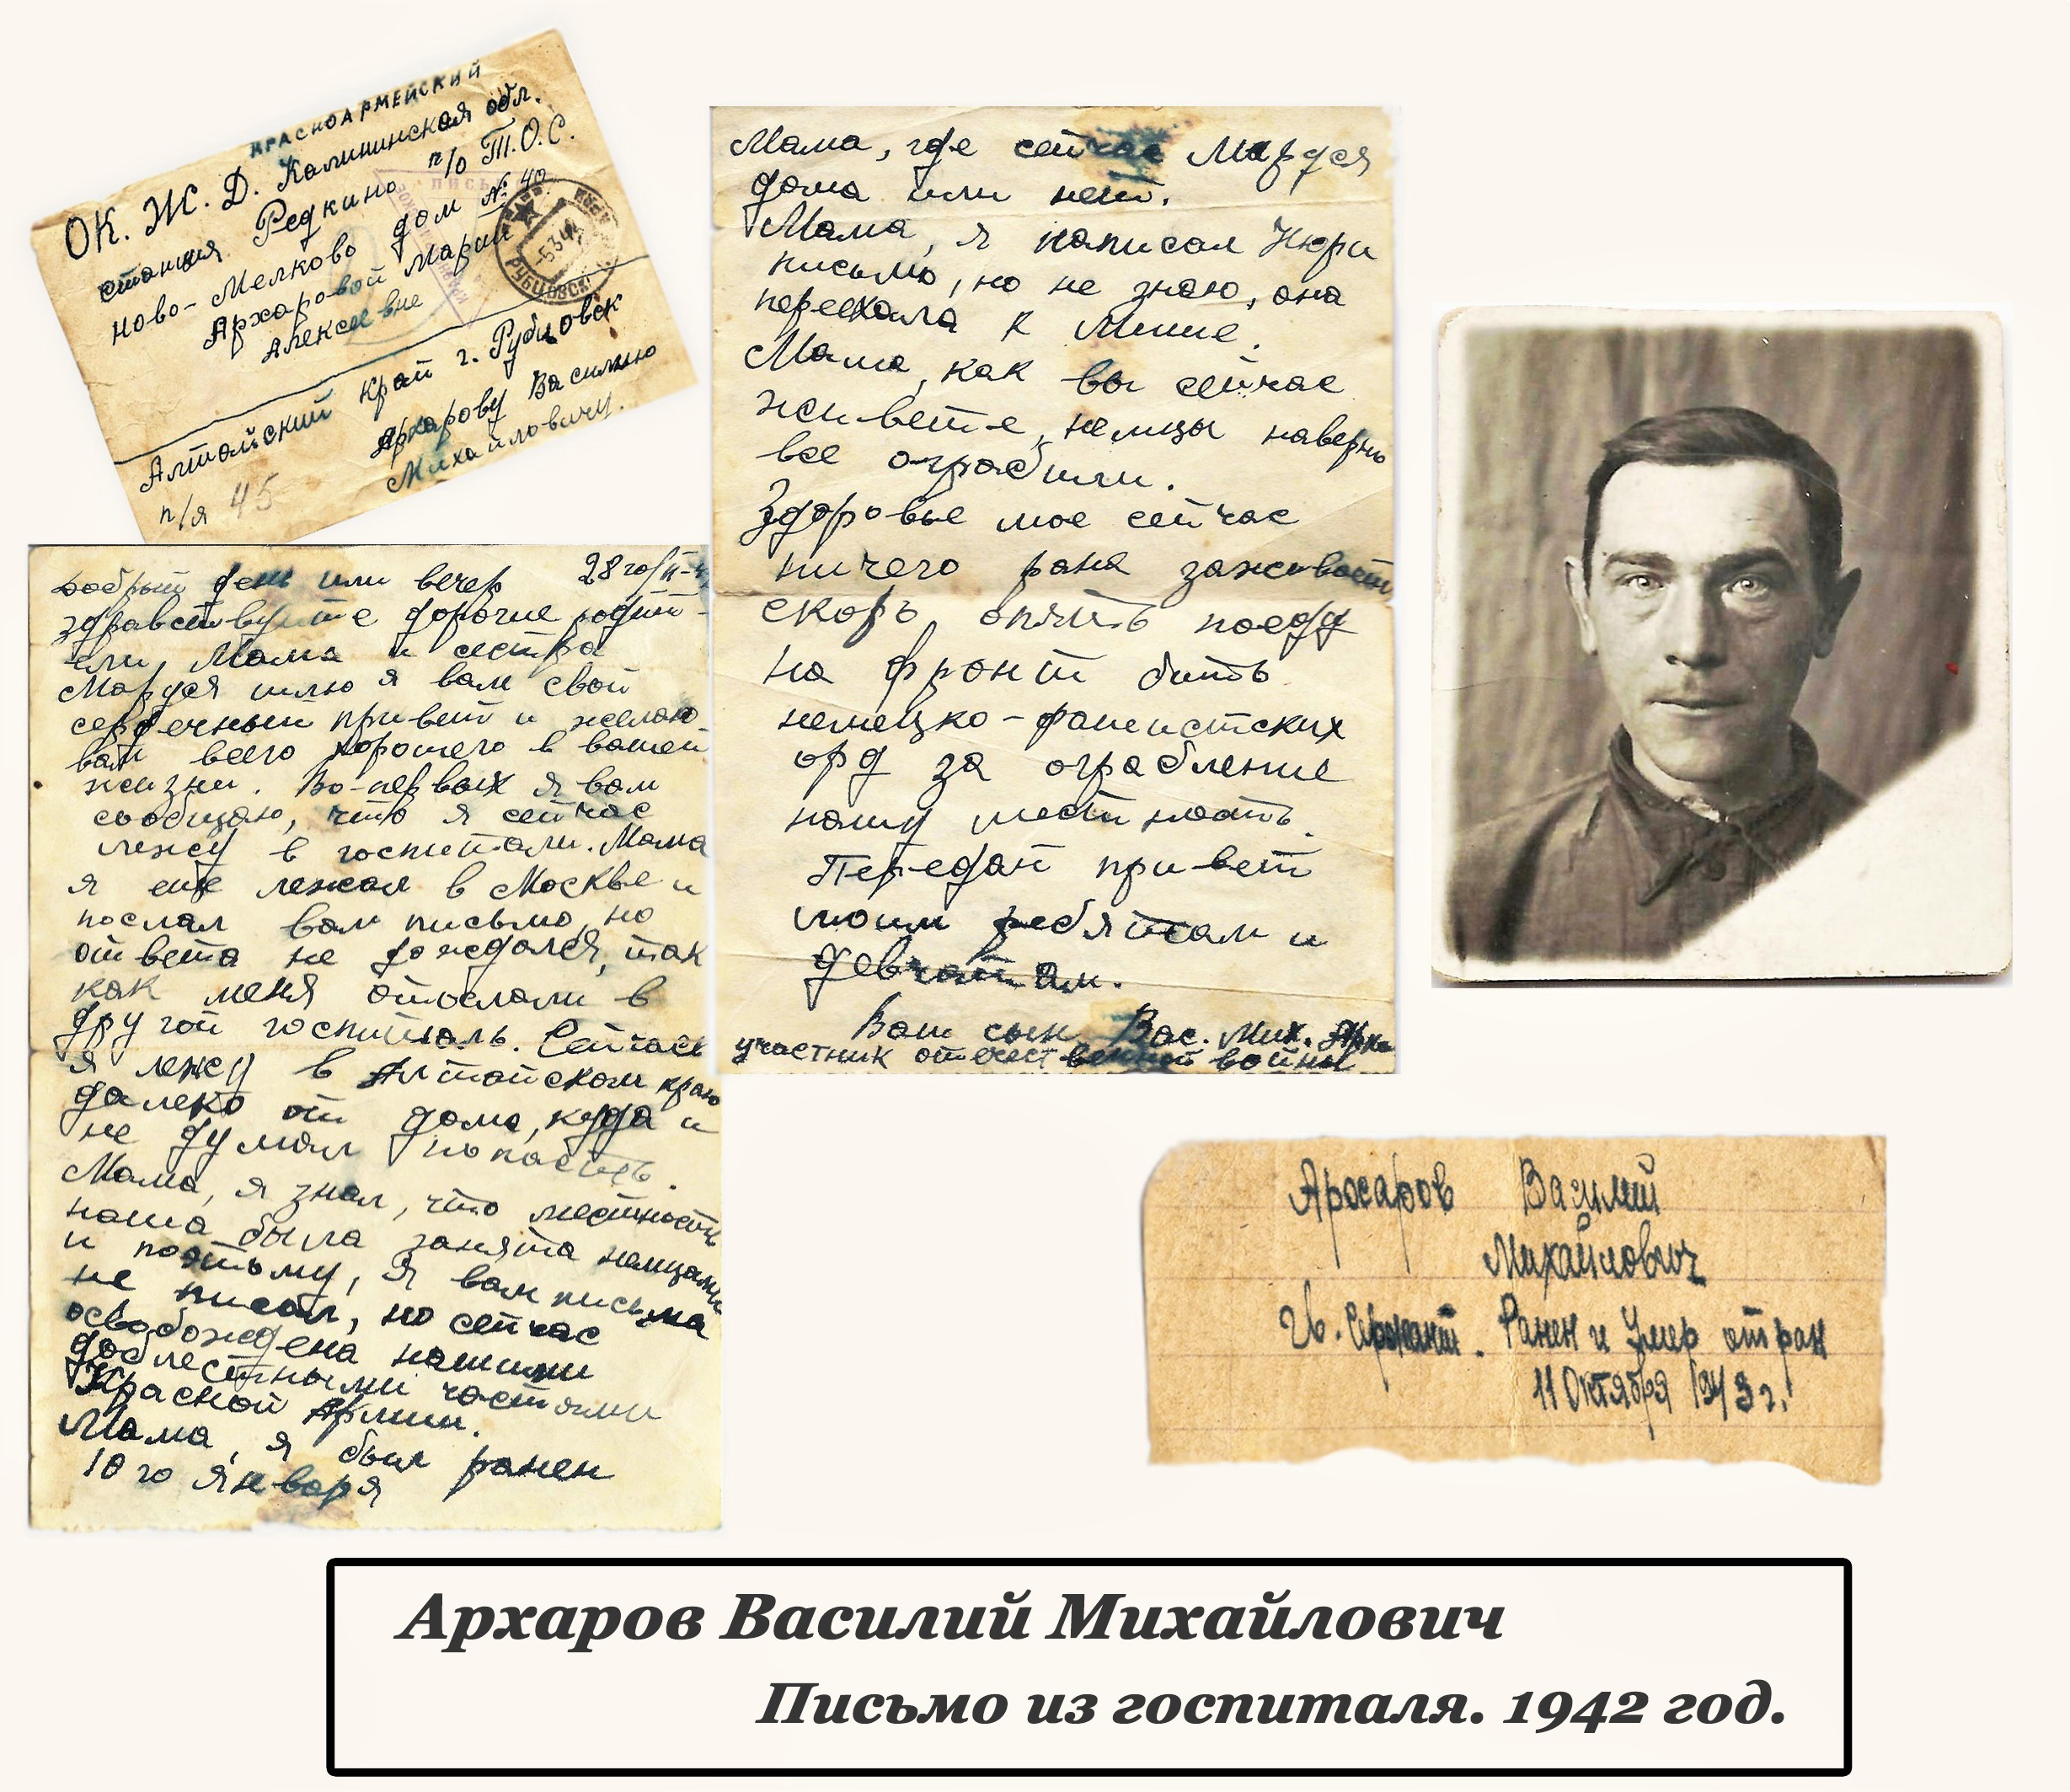 КРАСНОАРМЕЙСКИЙ
ОК. Ж. Д. Калининская обл.
станция Редкино п/о Т.О.С.
Ново-Мелково дом № 40
Архаровой Марии
Алексеевне
Алтайский край г. Рубцовск
п/я 45 Архарову Василию
Михайловичу.
Добрый день или вечер 28го/II-4
здравствуйте дорогие родит-
ели, Мама и сестра
Маруся шлю я вам свой
сердечный привет и желаю
вам всего хорошего в вашей
жизни. Во-первых я вам
сообщаю, что я сейчас
лежу в госпитали. Мама
я еще лежал в Москве и
послал вам письмо, но
ответа не дождался, так
как меня отослали в
другой госпиталь. Сейчас
я лежу в Алтайском краю
далеко от дома, куда и
не думал попасть.
Мама, я знал, что местность
наша была занята немцами
и поэтому, я вам письма
не писал, но сейчас
освобождена нашими
доблестными частями
Красной Армии.
Мама, я был ранен
10го января
Мама, где сейчас Маруся
дома или нет.
Мама, я написал Нюри
письмо, но не знаю, она
переехала к Мише.
Мама, как вы сейчас
живете, немцы наверно
все ограбили.
Здоровье мое сейчас
ничего рана заживает
скоро опять поеду
на фронт бить
немецко-фашистских
орд за ограбление
нашу местность.
Передай привет
моим ребятам и
девчатам.
Ваш сын Вас. Мих. Арха
участник отечественной войны
Архаров Василий
Михайлович
Гв. Сержант. Ранен и Умер от ран
11 Октября 1943 г.
Архаров Василий Михайлович
Письмо из госпиталя. 1942 год.